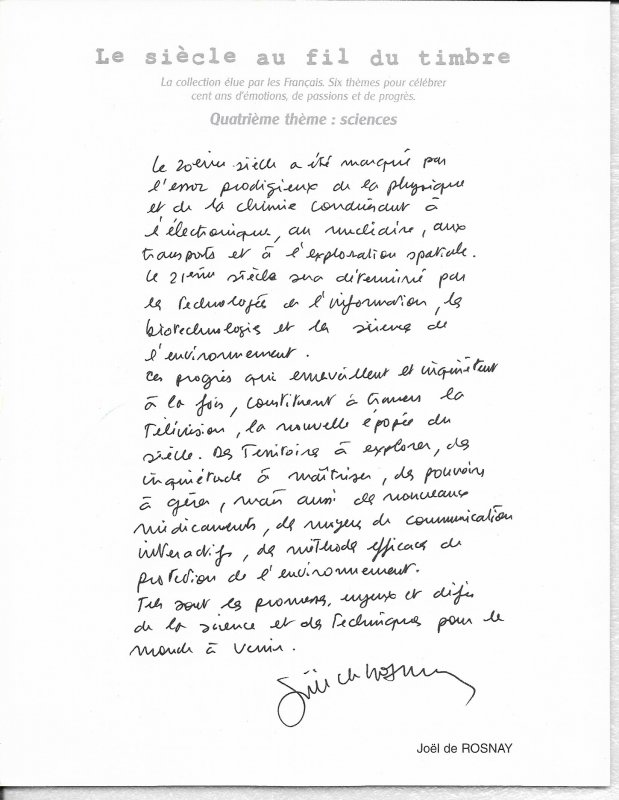 Le siècle au fil du timbre
La collection élue par les Français. Six thèmes pour célébrer
cent ans d'émotions, de passions et de progrès.
Quatrième thème : sciences
Le 20ème siècle a été marqué par
l'essor prodigieux de la physique
et de la chimie conduisant à
l'électronique, au nucléaire, aux
transports et à l'exploration spatiale.
Le 21ème siècle sera déterminé par
les technologies de l'information, les
biotechnologies et les sciences de
l'environnement.
Ces progrès qui émerveillent et inquiètent
à la fois, constituent à travers la
Télévision, la nouvelle épopée du
siècle. Des Territoires à explorer, des
inquiétudes à maîtriser, des pouvoirs
à gérer, mais aussi de nouveaux
médicaments, des moyens de communication
interactifs, des méthodes efficaces de
protection de l'environnement.
Tels sont les promesses, enjeux et défis
de la science et des Techniques pour le
monde à venir.
Joël de Rosnay
Joël de ROSNAY